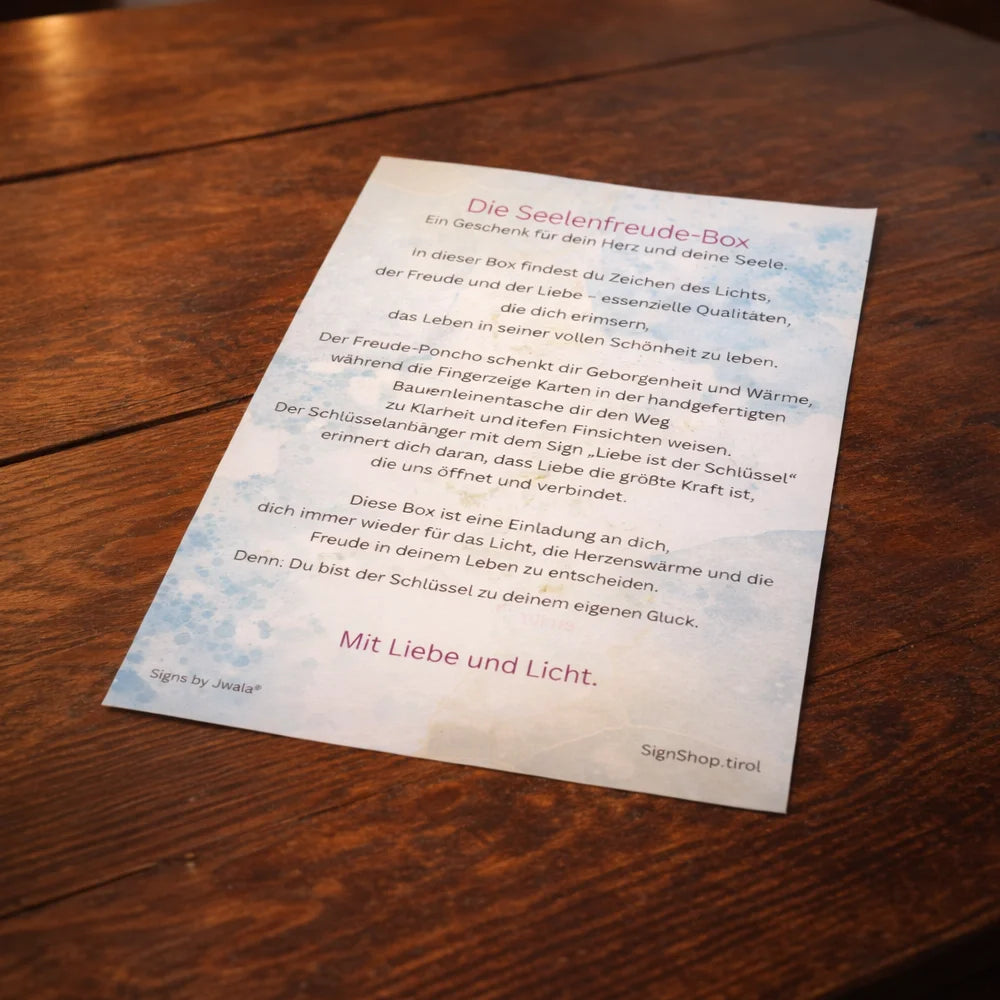 Die Seelenfreude-Box
Ein Geschenk für dein Herz und deine Seele.
in dieser Box findest du Zeichen des Lichts,
der Freude und der Liebe – essenzielle Qualitäten,
die dich erimsern,
das Leben in seiner vollen Schönheit zu leben.
Der Freude-Poncho schenkt dir Geborgenheit und Wärme,
während die Fingerzeige Karten in der handgefertigten
Bauɐenleinentasche dir den Weg
zu Klarheit und itefen Finsichten weisen.
Der Schlüsselanbänger mit dem Sign „Liebe ist der Schlüssel“
erinnert dich daran, dass Liebe die größte Kraft ist,
die uns öffnet und verbindet.
Diese Box ist eine Einladung an dich,
dich immer wieder für das Licht, die Herzenswärme und die
Freude in deinem Leben zu entscheiden.
Denn: Du bist der Schlüssel zu deinem eigenen Gluck.
Mit Liebe und Licht.
Signs by Jwala®
SignShop.tirol